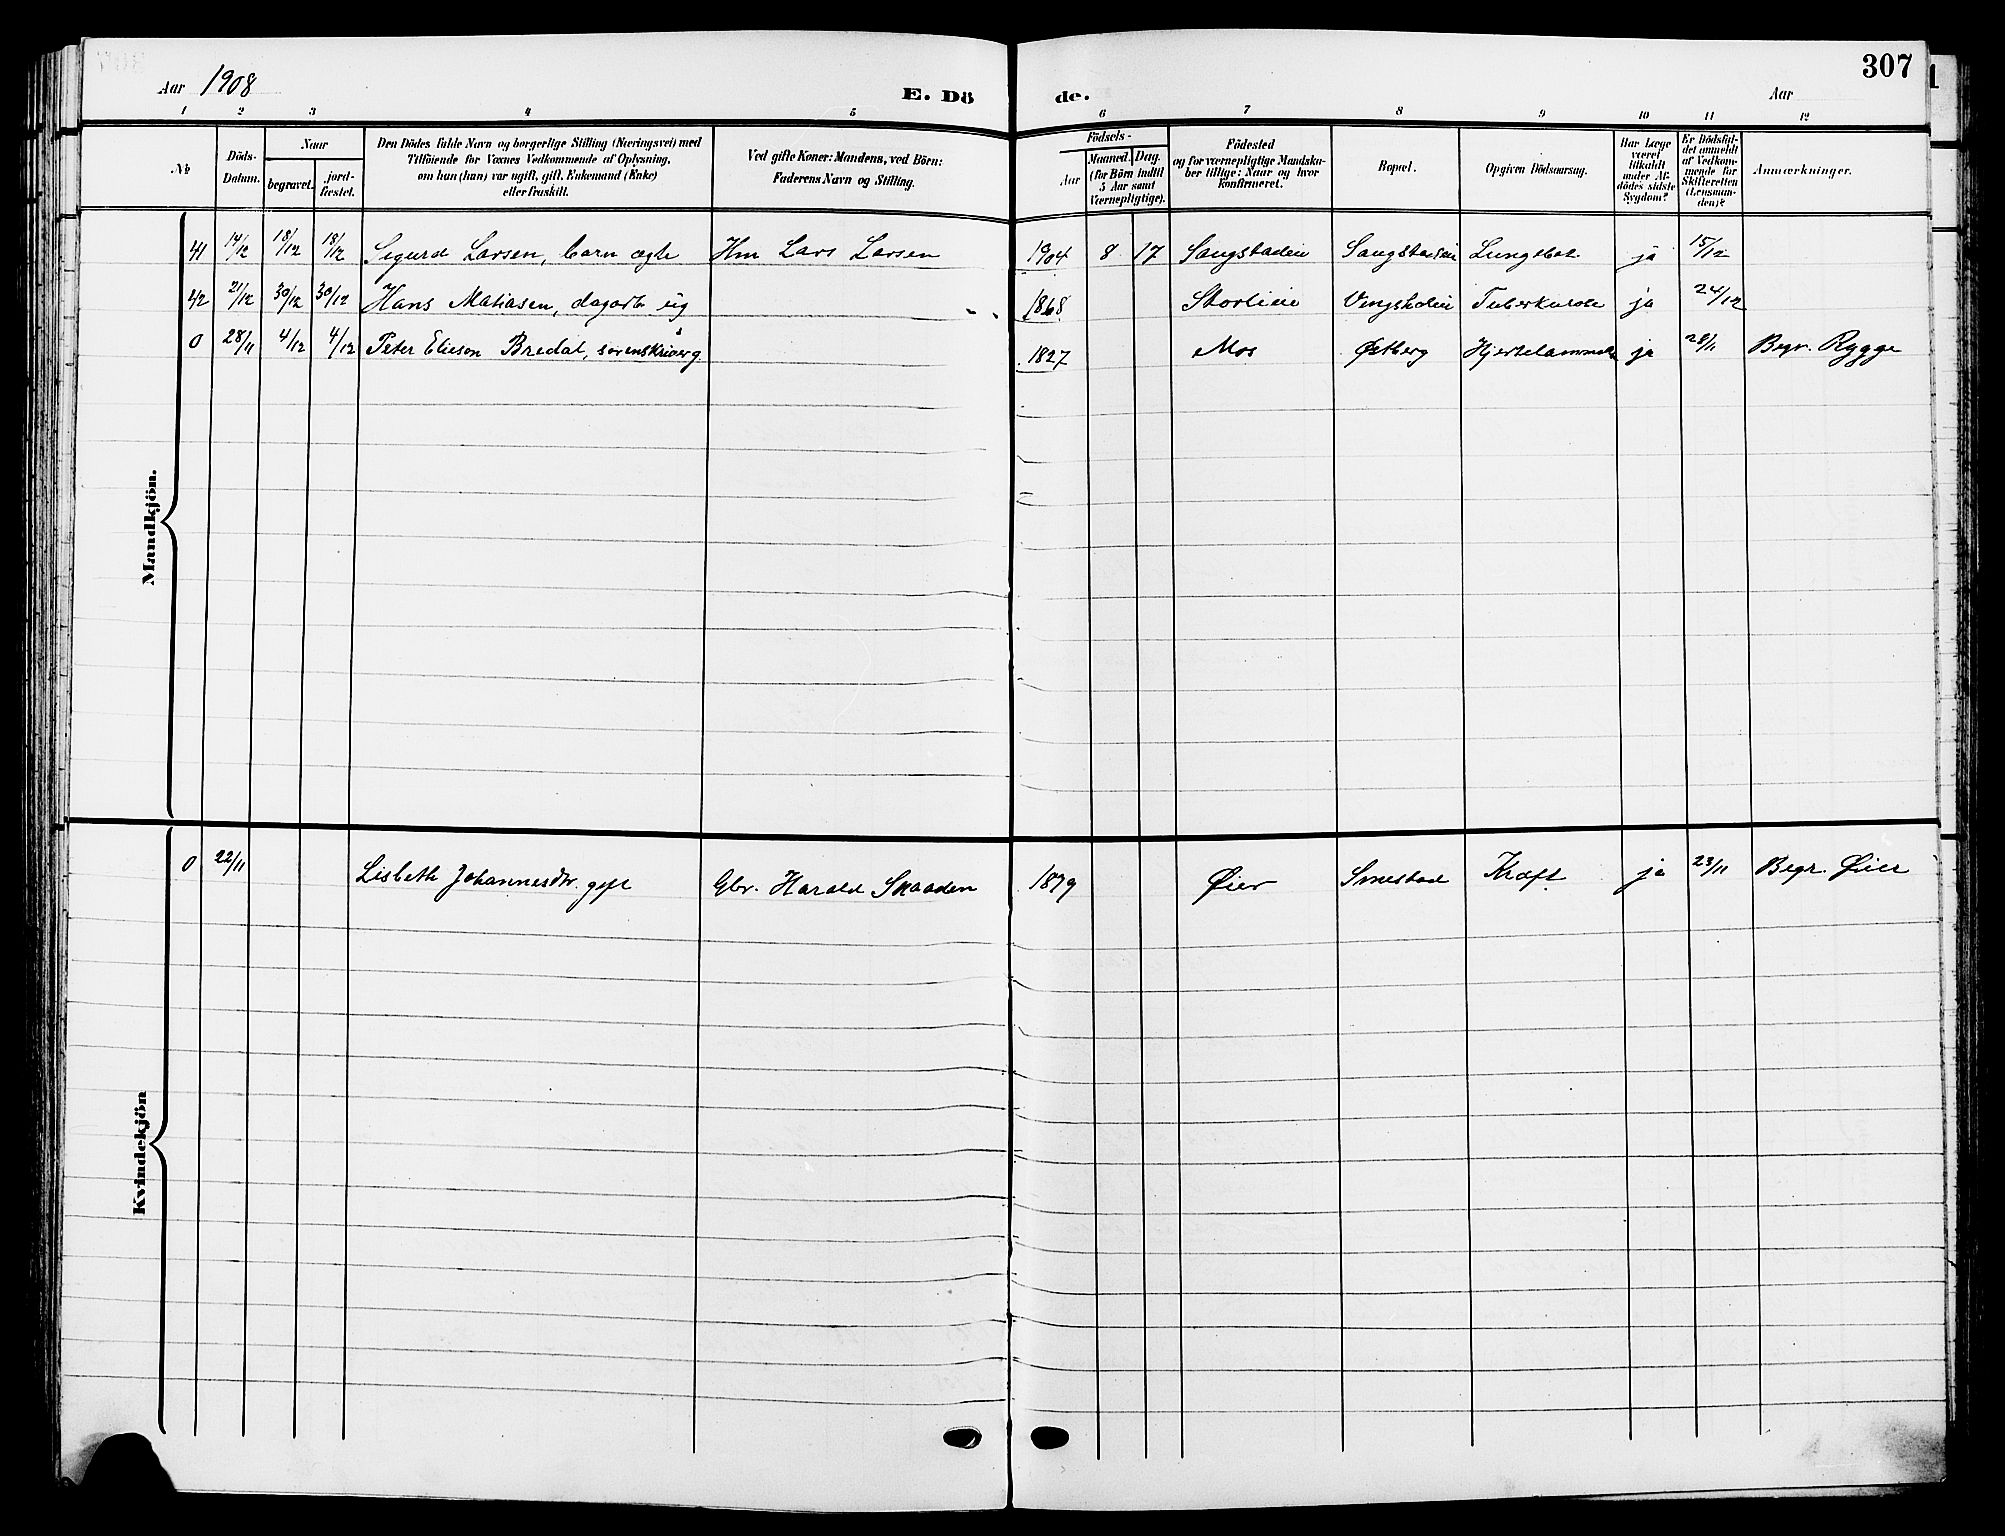 307
Aar 1908
E. Dö
de.
Aar
1 2 3 4 5 6 7 8 9 10 11 12
No.
Döds-Datum.
Naar
begravet.
jord-fæstet.
Den Dödes fulde Navn og borgerlige Stilling (Næringsvei) med
Tilföiende for Voxnes Vedkommende af Oplysning,
om han (hun) var ugift, gift, Enkemand (Enke)
eller fraskilt.
Ved gifte Koner: Mandens, ved Börn:
Faderens Navn og Stilling.
Födsels-
Aar
Maaned. Dag.
(for Börn indtil
5 Aar samt
Værnepligtige).
Födested
og for værnepligtige Mandska-
ber tillige: Naar og hvor
konfirmeret.
Bopæl.
Opgiven Dödsaarsag.
Har Læge
været
tilkaldt
under Af-
dödes sidste
Sygdom?
Er Dödsfal-
det anmeldt
af Vedkom-
mende for
Skifteretten
(Lensman-
den)?
Anmærkninger.
Mandkjön.
41 14/12 18/12 18/12 Sigurd Larsen, barn ægte Hm Lars Larsen 1904 8 17 Saugstadeie Saugstadeie Lungebet. ja 15/12
42 21/12 30/12 30/12 Hans Matiasen, dagarb. ug 1868 Storlieie Tuberkulose ja 24/12
0 28/11 4/12 4/12 Peter Elieson Bredal, sorenskriver g 1827 Mos Østberg Hjertelammelse ja 28/11 Begr. Rygge
Kvindekjön
0 22/11 Lisbeth Johannesdtr. gift Gbr. Harald Skaaden 1879 Øier Smestad Kræft. ja 23/11 Begr. Øier